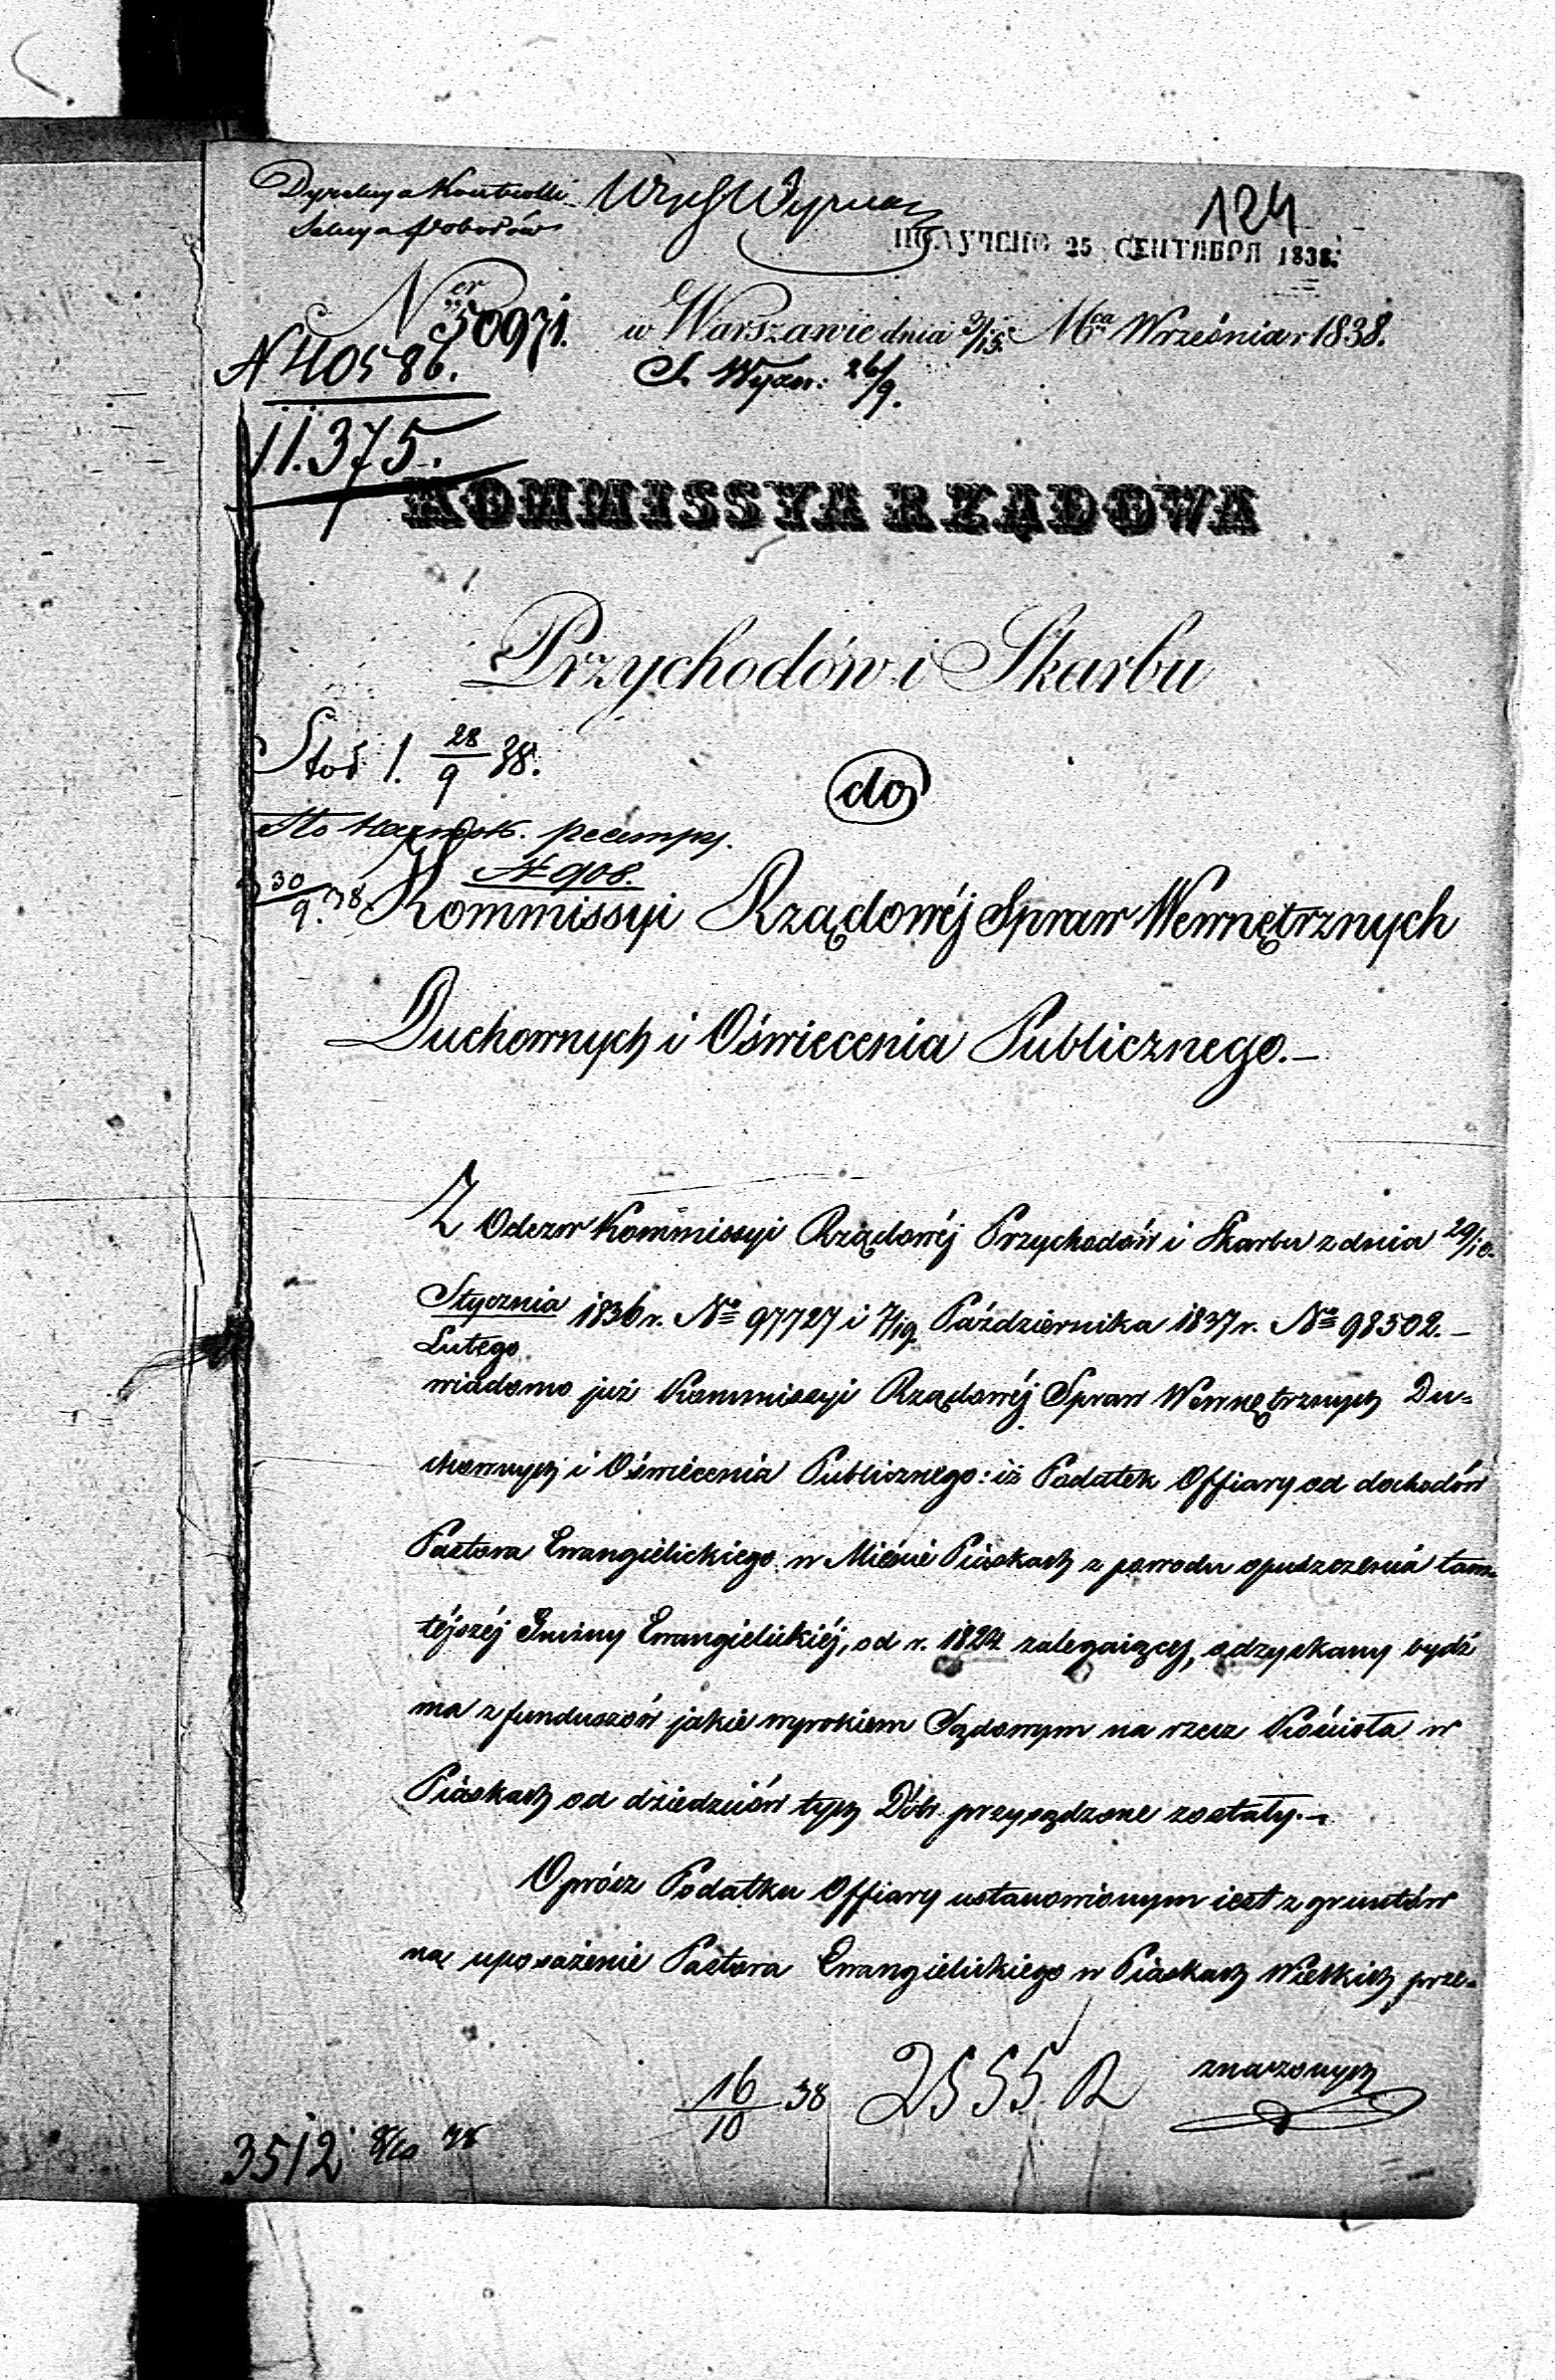 Dyrekcya Kontrolli
Sekcya Poborów
124
ПОЛУЧЕНО 25 СЕНТЯБРЯ 1838.
Ner 50971. w Warszawie dnia 3/15. Mca Września r 1838.
N 40586.
S. Wyzn: 26/9.
11.375.
KOMMISSYA RZĄDOWA
Przychodów i Skarbu
Stoś 1. 28/9 38.
do
N 908.
30/9. 38.
Kommissyi Rządowéj Spraw Wewnętrznych
Duchownych i Oświecenia Publicznego.—
Z Odezw Kommissyi Rządowéj Przychodów i Skarbu z dnia 29/10.
Stycznia/Lutego 1836 r. No 97727 i 7/19. Października 1837 r. No 98502.—
wiadomo już Kommissyi Rządowéj Spraw Wewnętrznych Du=
chownych i Oświecenia Publicznego: iż Podatek Offiary od dochodów
Pastora Ewangielickiego w Mieście Piaskach z powodu opuszczenia tam=
téjszéj Gminy Ewangielickiéj, od r. 1824 zalegaiący, odzyskany bydź
ma z funduszów jakie wyrokiem Sądowym na rzecz Kościoła w
Piaskach od dziedziców tych Dóbr przysądzone zostały.—
Oprócz Podatku Offiary ustanowionym iest z gruntów
na uposażenie Pastora Ewangielickiego w Piaskach Wielkich prze=
znaczonych
16/10 38 2555 R
3512 8/10 38